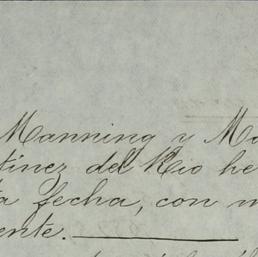 Manning y Ma
tínez del Rio he
ta fecha, con m
ente.